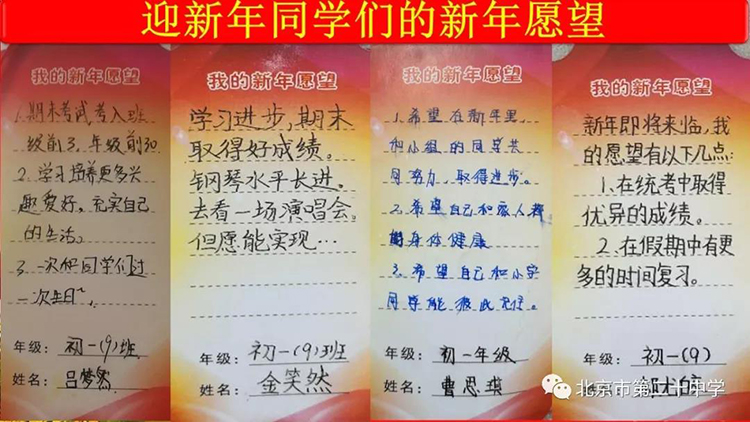 迎新年同学们的新年愿望
我的新年愿望
1.期末考试,考入班
级前3,年级前30
2.学习培养更多兴
趣爱好,充实自己
的生活。
3.一次和同学们过
一次生日,
年级:初一(9)班
姓名:吕梦然
我的新年愿望
学习进步,期末
取得好成绩。
钢琴水平长进。
去看一场演唱会。
但愿能实现…
年级:初一(9)班
姓名:金笑然
我的新年愿望
1.希望在新年里
和小组的同学共
同努力,取得进步。
2.希望自己和家人
身体健康
3.希望自己和小学
同学能彼此
年级:初一年级
姓名:曹思琪
我的新年愿望
新年即将来临,我
的愿望有以下几点:
1.在统考中取得
优异的成绩。
2.在假期中有更
多的时间复习。
年级:初一(9)
姓名:
北京市第五十中学